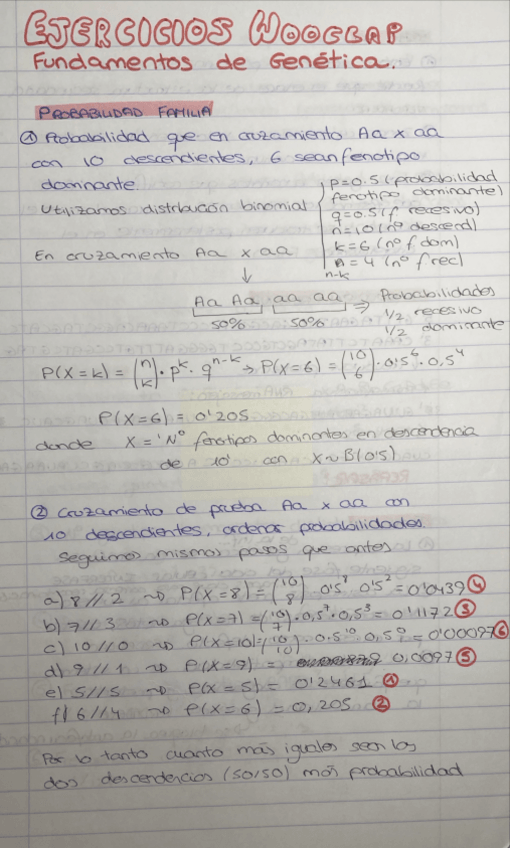 EJERCICIOS WOOCLAP
Fundamentos de Genética.
PROBABILIDAD FAMILIA
① Probabilidad que en cruzamiento Aa x aa
con 10 descendientes, 6 sean fenotipo
dominante
Utilizamos distribución binomial
p=0.5 (probabilidad
fenotipo dominante)
q=0.5 (f recesivo)
n=10 (nº descend)
k=6 (nº f dom)
n=4 (nº f rec)
n-k
En cruzamiento Aa x aa
↓
Aa Aa, aa aa ⇒ Probabilidades
50% 50% 1/2 recesivo
1/2 dominante
P(X=k) = (n k) · p^k · q^n-k → P(X=6) = (10 6) · 0,5^6 · 0,5^4
P(X=6) = 0'205
donde X = 'Nº fenotipos dominantes en descendencia
de 10' con X~B(0'5)
② Cruzamiento de prueba Aa x aa con
10 descendientes, ordenar probabilidades.
Seguimos mismos pasos que antes
a) 8//2 ⇝ P(X=8) = (10 8) 0'5^8 · 0'5^2 = 0'0439 ④
b) 7//3 ⇝ P(X=7) = (10 7) · 0,5^7 · 0,5^3 = 0'1172 ③
c) 10//0 ⇝ P(X=10) = (10 10) · 0.5^10 · 0,5^0 = 0'00097 ⑥
d) 9//1 ⇝ P(X=9) = 0,0097 ⑤
e) 5//5 ⇝ P(X=5) = 0'2461 ①
f) 6//4 ⇝ P(X=6) = 0,205 ②
Por lo tanto cuanto más iguales sean los
dos descendencias (50/50) más probabilidad